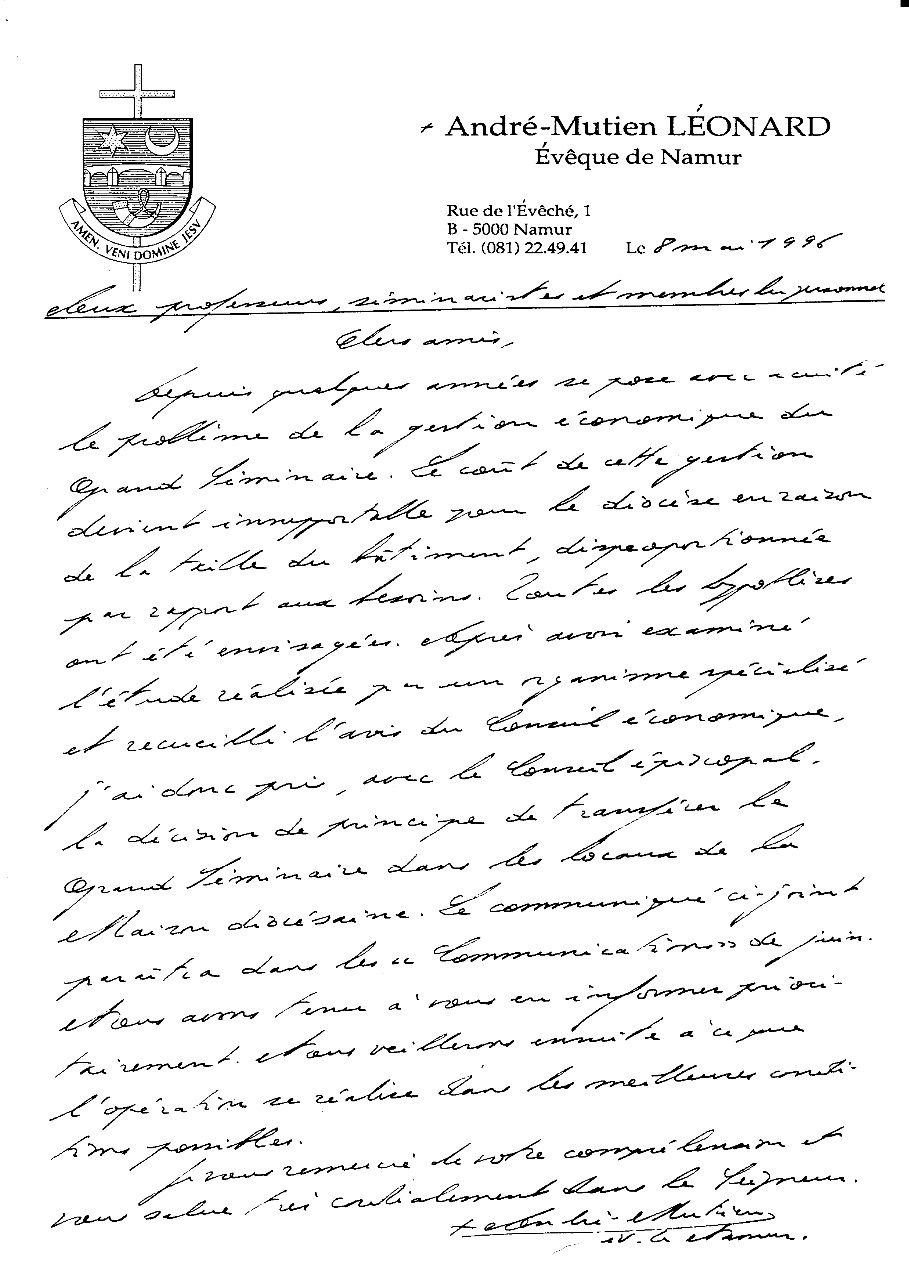 + André-Mutien LÉONARD
Évêque de Namur
AMEN, VENI DOMINE JESV
Rue de l'Évêché, 1
B - 5000 Namur
Tél. (081) 22.49.41 Le 8 mai 1996
Aux professeurs, séminaristes et membres du personnel
Chers amis,
Depuis quelques années se pose avec acuité
le problème de la gestion économique du
Grand Séminaire. Le coût de cette gestion
devient insupportable pour le diocèse en raison
de la taille du bâtiment, disproportionnée
par rapport aux besoins. Toutes les hypothèses
ont été envisagées. Après avoir examiné
l'étude réalisée par un organisme spécialisé
et recueilli l'avis du Conseil économique,
j'ai donc pris, avec le Conseil épiscopal,
la décision de principe de transférer le
Grand Séminaire dans les locaux de la
Maison diocésaine. Le communiqué ci-joint
paraîtra dans les « Communications » de juin.
Nous avons tenu à vous en informer priori-
tairement. Nous veillerons ensuite à ce que
l'opération se réalise dans les meilleures condi-
tions possibles.
Je vous remercie de votre compréhension et
vous salue très cordialement dans le Seigneur.
+ André-Mutien
év. de Namur.